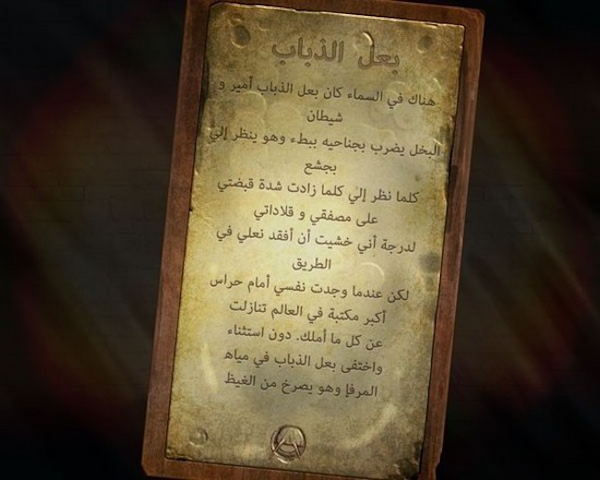 بعل الذباب
هناك في السماء كان بعل الذباب أمير و
شيطان
البخل يضرب بجناحيه ببطء وهو ينظر إلي
بجشع
كلما نظر إلي كلما زادت شدة قبضتي
على مصفقي و قلاداتي
لدرجة أني خشيت أن أفقد نعلي في
الطريق
لكن عندما وجدت نفسي أمام حراس
أكبر مكتبة في العالم تنازلت
عن كل ما أملك. دون استثناء
واختفى بعل الذباب في مياه
المرفإ وهو يصرخ من الغيظ